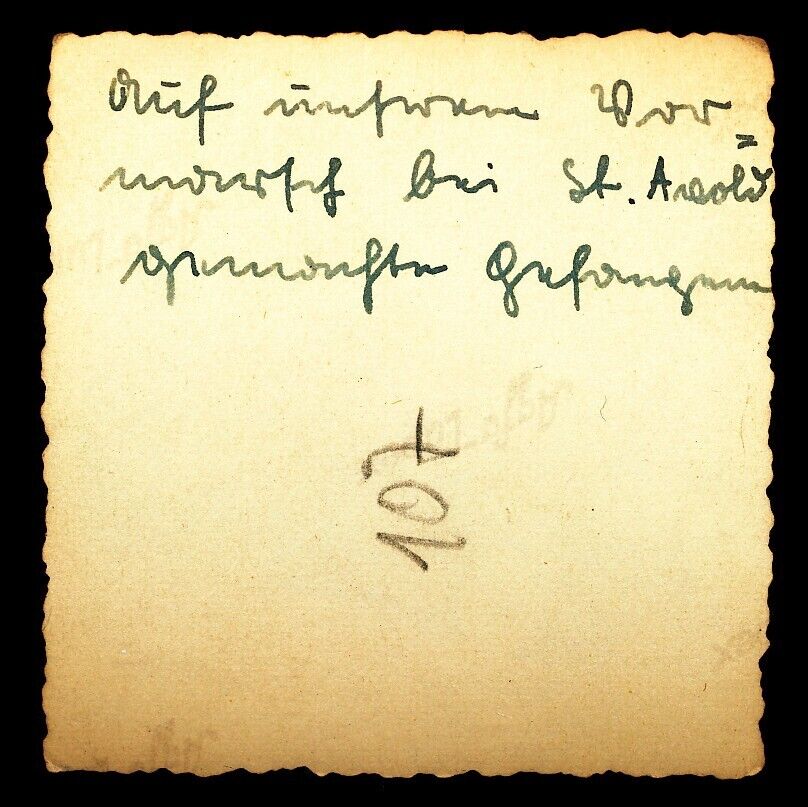 Auf unserem Vor=
marsch bei St. Avold
gemachte Gefangene
107